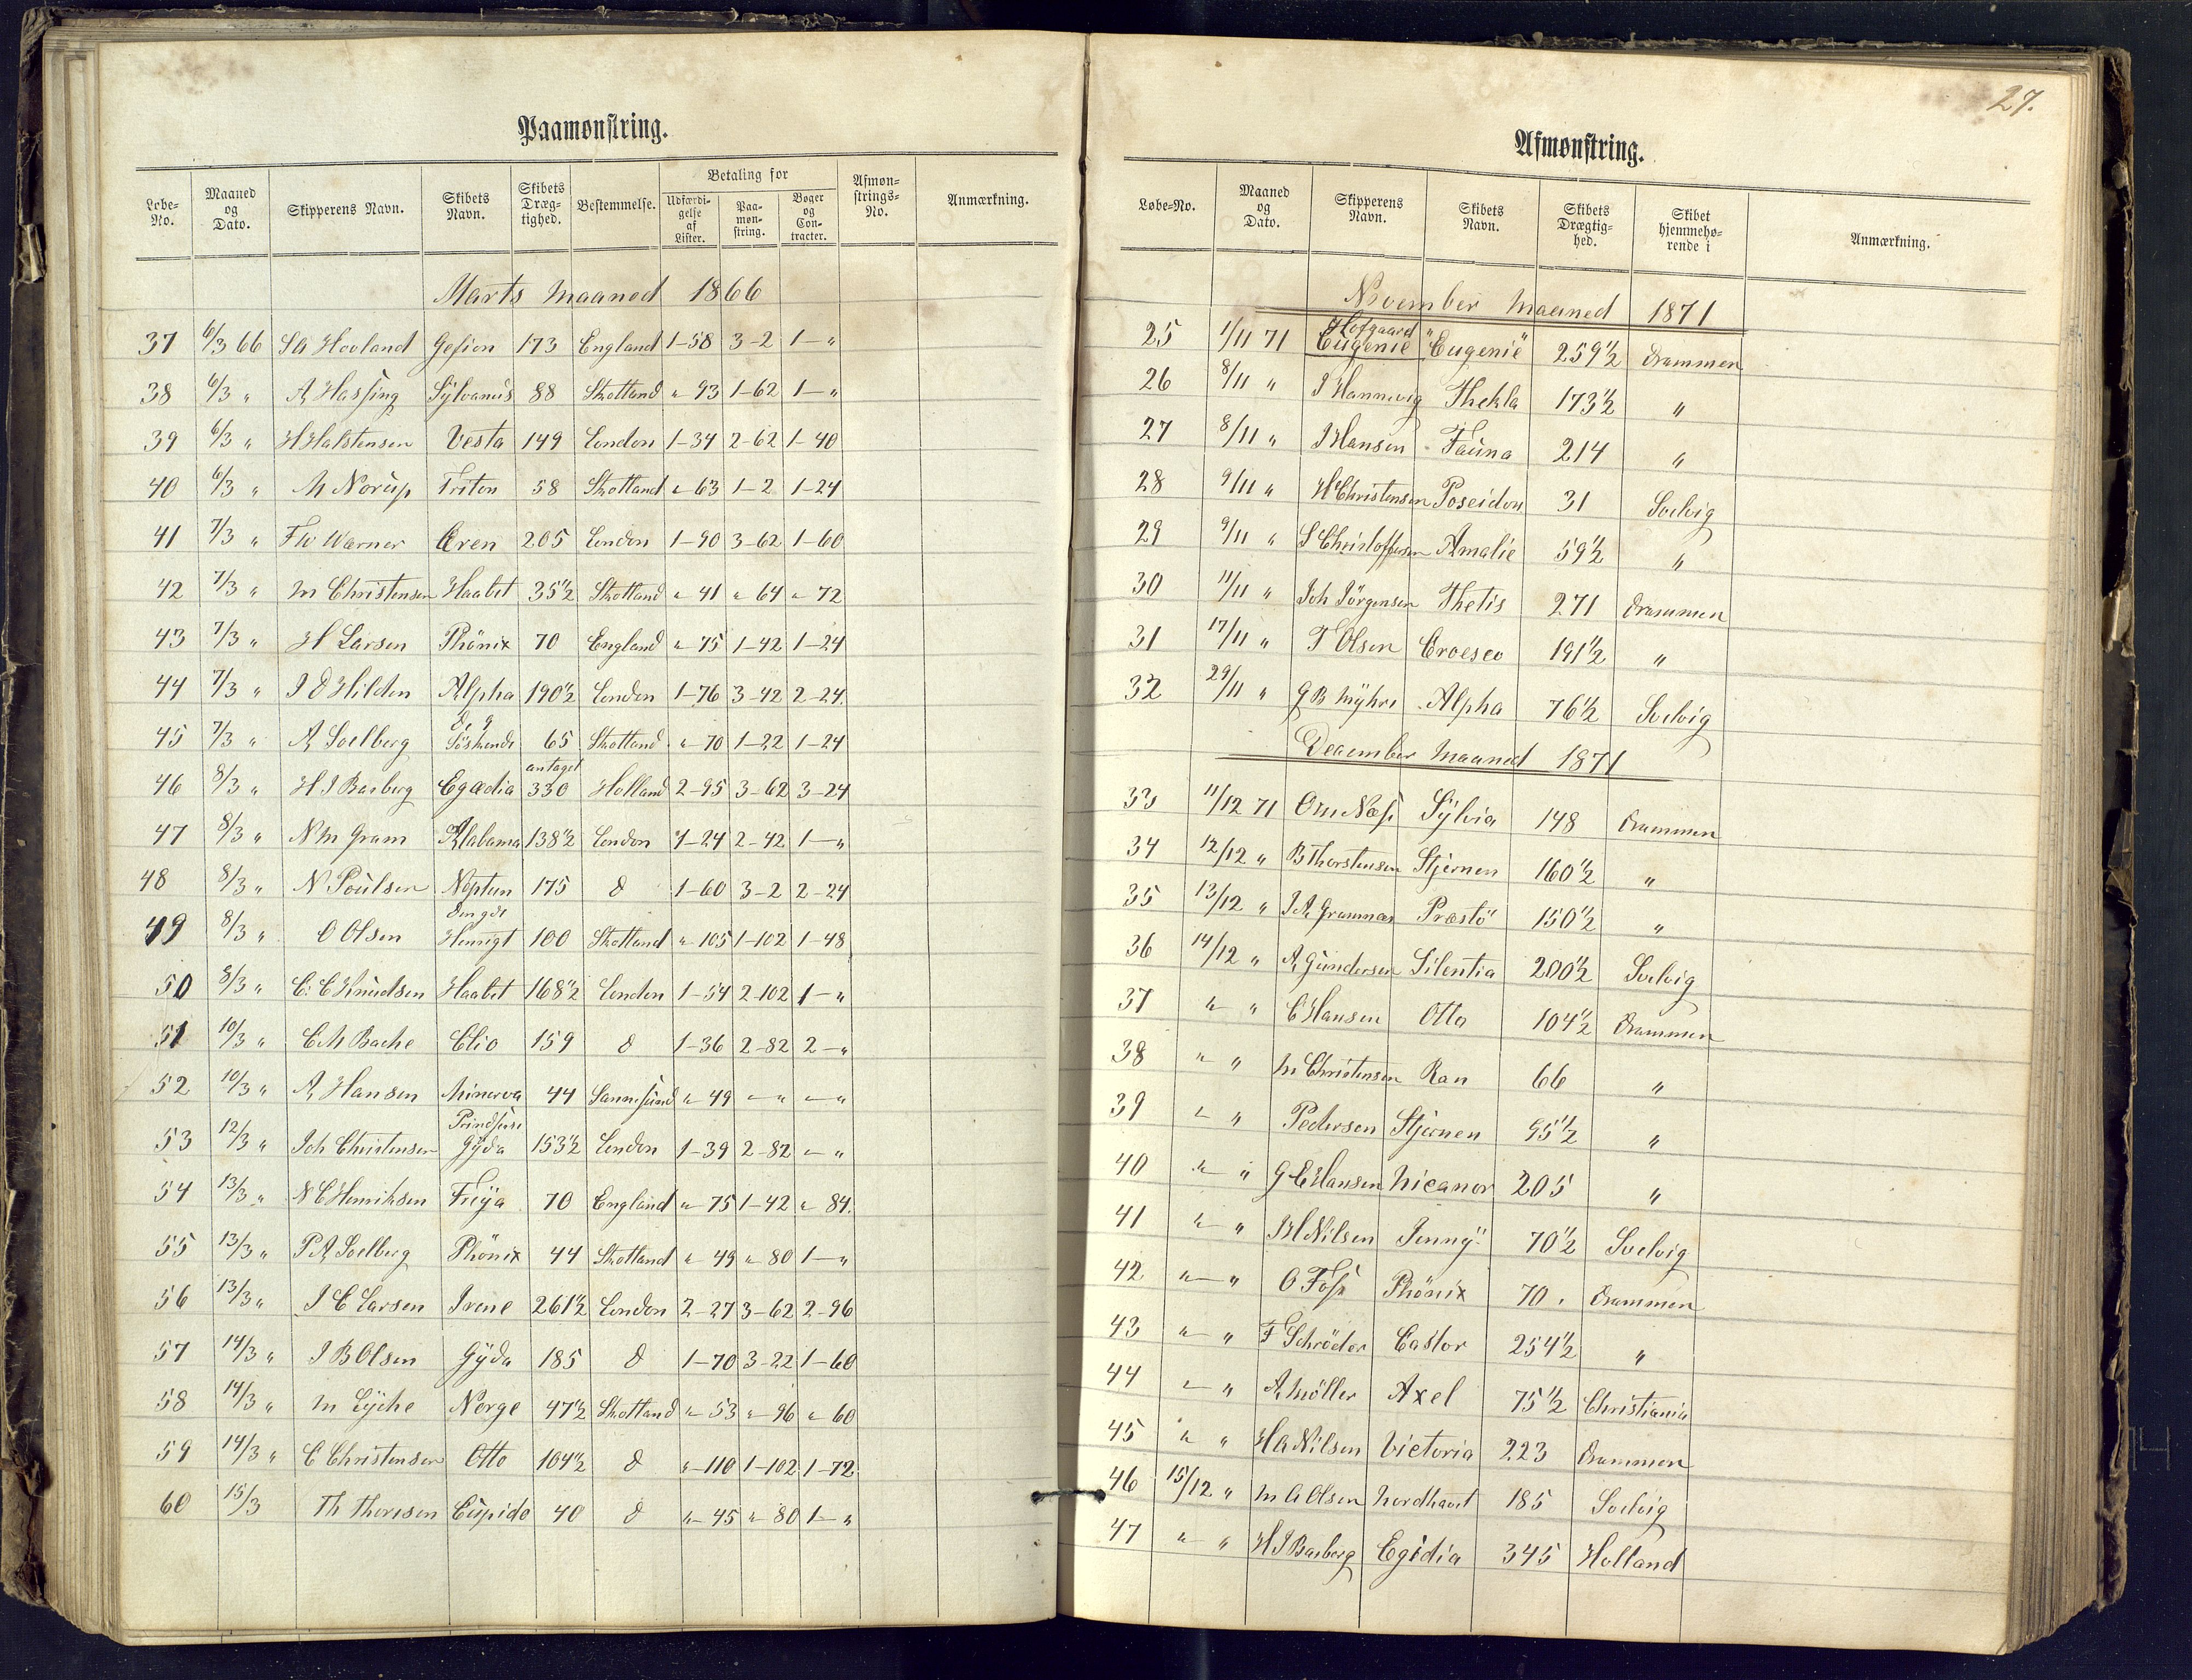 Paamønstring.
Løbe-No. | Maaned og Dato. | Skipperens Navn. | Skibets Navn. | Skibets Dræg-tighed. | Bestemmelse. | Betaling for | Udfærdi-gelse af Lister. | Paa-møn-string. | Bøger og Con-tracter. | Afmøn-strings-No. | Anmærkning.
Marts Maaned 1866
37 6/3 66 Hovland Gefion 173 England 1-58 3-2 1-"
38 6/3 " A Hassing Sylvanus 88 Skotland "-93 1-62 1-"
39 6/3 " H Halstensen Vesta 149 London 1-34 2-62 1-40
40 6/3 " M Norup Triton 58 Skotland "-63 1-2 1-24
41 7/3 " Fw Warner Æren 205 London 1-90 3-62 1-60
42 7/3 " M Christensen Haabet 35 1/2 Skotland "-41 "-64 "-72
43 7/3 " H Larsen Phönix 70 England "-75 1-42 1-24
44 7/3 " I D Hilden Alpha 190 1/2 London 1-76 3-42 2-24.
45 7/3 " A Soelberg Söskende 65 Skotland "-70 1-22 1-24
46 8/3 " H I Barberg Egadia antaget 330 Holland 2-95 3-62 3-24
47 8/3 " N M Gram Alabama 138 1/2 London 1-24 2-42 1-"
48 8/3 " N Poulsen Neptun 175 d 1-60 3-2 2-24
49 8/3 " O Olsen den gde Hensigt 100 Skotland "-105 1-102 1-48
50 8/3 " C. C Knudsen Haabet 168 1/2 London 1-54 2-102 1-"
51 10/3 " C M Bache Clio 159 d 1-36 2-82 2-"
52 10/3 " A Hansen Minerva 44 Sannesund "-49 "-" "-"
53 12/3 " Joh Christensen Prindsesse Gyda 153 1/2 London 1-39 2-82 "-"
54 13/3 " N C Henriksen Freya 70 England "-75 1-42 "-84.
55 13/3 " P A Soelberg Phönix 44 Skotland "-49 "-80 1-"
56 13/3 " I C Larsen Irene 261 1/2 London 2-27 3-62 2-96
57 14/3 " I B Olsen Gyda 185 d 1-70 3-22 1-60
58 14/3 " M Lyche Norge 47 1/2 Skotland "-53 "-96 "-60
59 14/3 " C Christensen Otto 104 1/2 d "-110 1-102 1-72
60 15/3 Th Thoresen Cupido 40 d "-45 "-80 1-"
27.
Afmønstring.
Løbe-No. | Maaned og Dato. | Skipperens Navn. | Skibets Navn. | Skibets Drægtig-hed. | Skibet hjemmehø-rende i | Anmærkning.
November Maaned 1871
25 1/11 71 Hofgaard Eugenie "Eugenie" 259 1/2 Drammen
26 8/11 " I Hannevig Thekla 173 1/2 "
27 8/11 " I Hansen Fauna 214 "
28 9/11 " H Christensen Poseidon 31 Svelvig
29 9/11 " S Christoffersen Amalie 59 1/2 "
30 11/11 " Joh Jörgensen Thetis 271 Drammen
31 17/11 " T Olsen Croeseo 191 1/2 "
32 29/11 " G B Myhre Alpha 76 1/2 Svelvig
December Maaned 1871
33 11/12 71 Næss Sylvia 148 Drammen
34 12/12 " B Thorstensen Stjernen 160 1/2 "
35 13/12 " I A Grannæs Præstö 150 1/2 "
36 14/12 " A Gundersen Silentia 200 1/2 Svelvig
37 " " C Hansen Otto 104 1/2 Drammen
38 " " M Christensen Ran 66 "
39 " " Pedersen Stjernen 95 1/2 "
40 " " G C Hansen Nicanor 205 "
41 " " H Nilsen Jenny 70 1/2 Svelvig
42 " " O Foss Phönix 70. Drammen
43 " " F Schröder Castor 254 1/2 "
44 " " A Möller Axel 75 1/2 Christiania
45 " " H A Nilsen Victoria 223 Drammen
46 15/12 " M A Olsen Nordhavet 185 Svelvig
47 " " H I Barberg Egidia 345 Holland